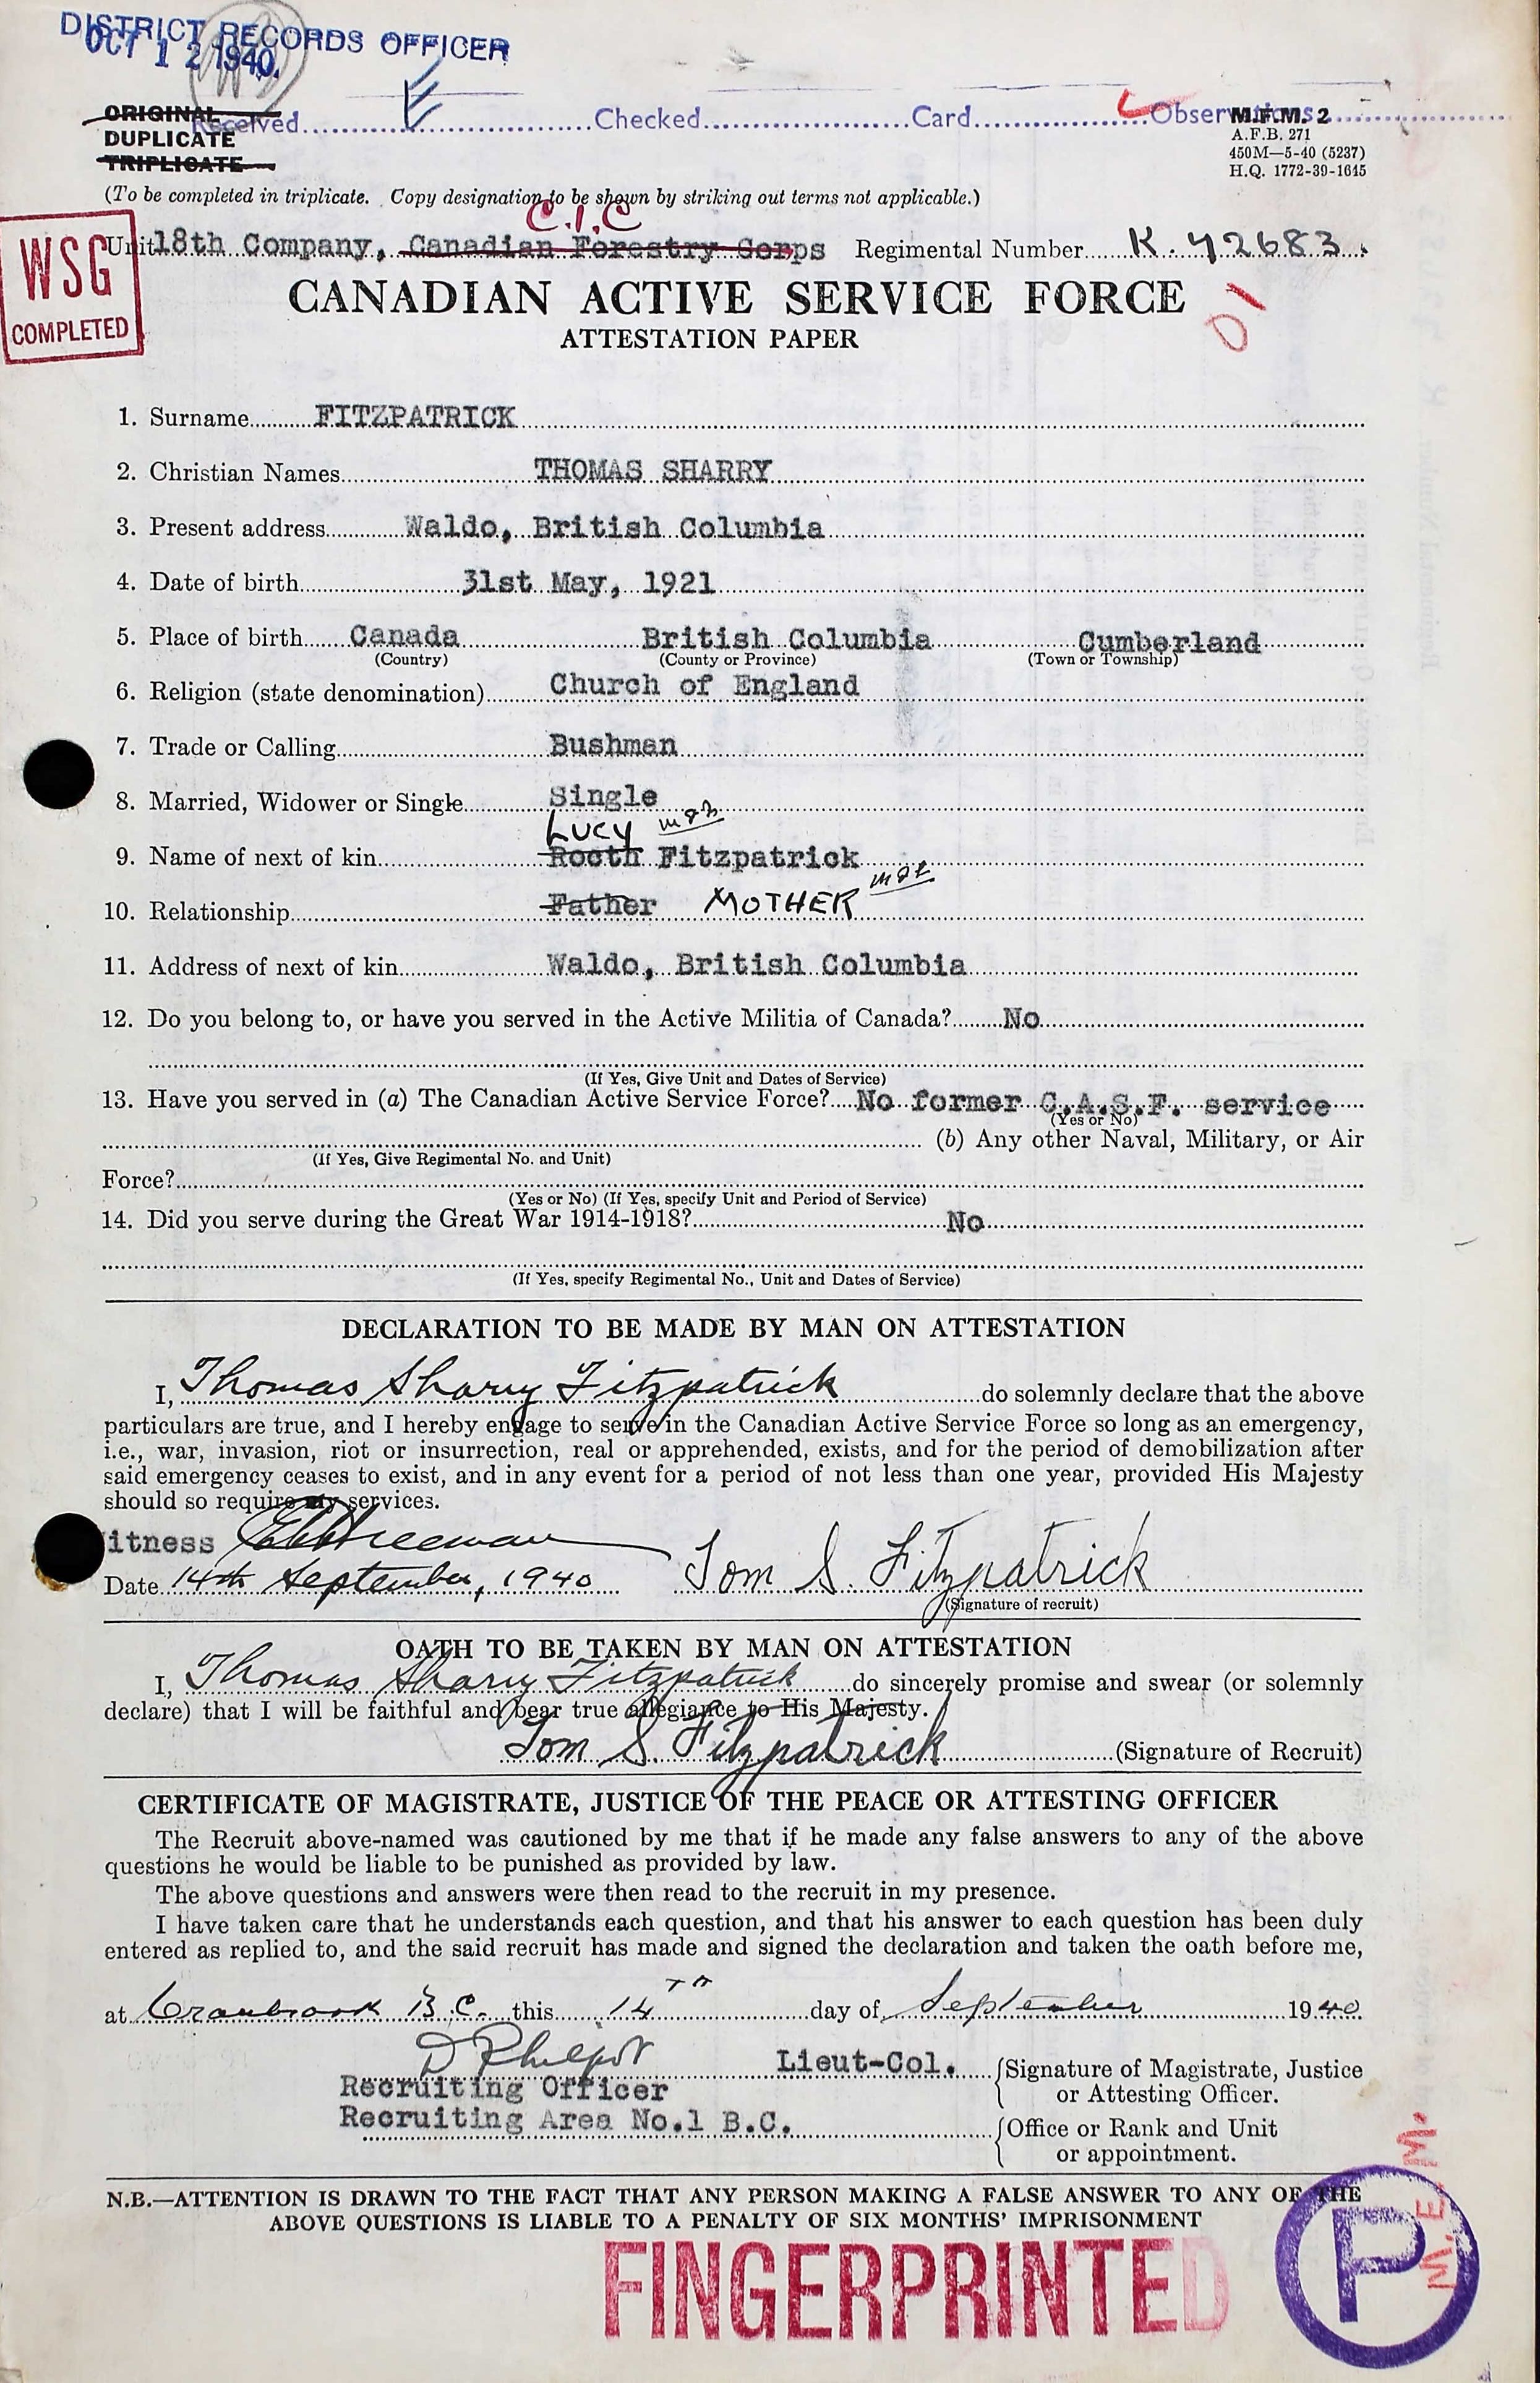 DISTRICT RECORDS OFFICER
OCT 12 1940.
Received Checked Card Observations
ORIGINAL
DUPLICATE
TRIPLICATE
M.F.M. 2
A.F.B. 271
450M—5-40 (5237)
H.Q. 1772-39-1645
(To be completed in triplicate. Copy designation to be shown by striking out terms not applicable.)
C.I.C
WSG
COMPLETED
Unit 18th Company, Canadian Forestry Corps Regimental Number K.42683.
CANADIAN ACTIVE SERVICE FORCE
ATTESTATION PAPER
1. Surname FITZPATRICK
2. Christian Names THOMAS SHARRY
3. Present address Waldo, British Columbia
4. Date of birth 31st May, 1921
5. Place of birth Canada British Columbia Cumberland
(Country) (County or Province) (Town or Township)
6. Religion (state denomination) Church of England
7. Trade or Calling Bushman
8. Married, Widower or Single Single
LUCY
9. Name of next of kin Rooth Fitzpatrick
10. Relationship Father MOTHER
11. Address of next of kin Waldo, British Columbia
12. Do you belong to, or have you served in the Active Militia of Canada? No
(If Yes, Give Unit and Dates of Service)
13. Have you served in (a) The Canadian Active Service Force? No former C.A.S.F. service
(Yes or No)
(b) Any other Naval, Military, or Air
(If Yes, Give Regimental No. and Unit)
Force?
(Yes or No) (If Yes, specify Unit and Period of Service)
14. Did you serve during the Great War 1914-1918? No
(If Yes, specify Regimental No., Unit and Dates of Service)
DECLARATION TO BE MADE BY MAN ON ATTESTATION
I, Thomas Sharry Fitzpatrick do solemnly declare that the above
particulars are true, and I hereby engage to serve in the Canadian Active Service Force so long as an emergency,
i.e., war, invasion, riot or insurrection, real or apprehended, exists, and for the period of demobilization after
said emergency ceases to exist, and in any event for a period of not less than one year, provided His Majesty
should so require my services.
itness
Date 14th September, 1940 Tom S. Fitzpatrick
(Signature of recruit)
OATH TO BE TAKEN BY MAN ON ATTESTATION
I, Thomas Sharry Fitzpatrick do sincerely promise and swear (or solemnly
declare) that I will be faithful and bear true allegiance to His Majesty.
Tom S. Fitzpatrick (Signature of Recruit)
CERTIFICATE OF MAGISTRATE, JUSTICE OF THE PEACE OR ATTESTING OFFICER
The Recruit above-named was cautioned by me that if he made any false answers to any of the above
questions he would be liable to be punished as provided by law.
The above questions and answers were then read to the recruit in my presence.
I have taken care that he understands each question, and that his answer to each question has been duly
entered as replied to, and the said recruit has made and signed the declaration and taken the oath before me,
at Cranbrook B.C. this 14TH day of September 1940
D Philpot Lieut-Col. (Signature of Magistrate, Justice
Recruiting Officer or Attesting Officer.
Recruiting Area No.1 B.C. (Office or Rank and Unit
or appointment.
N.B.—ATTENTION IS DRAWN TO THE FACT THAT ANY PERSON MAKING A FALSE ANSWER TO ANY OF THE
ABOVE QUESTIONS IS LIABLE TO A PENALTY OF SIX MONTHS' IMPRISONMENT
FINGERPRINTED
P